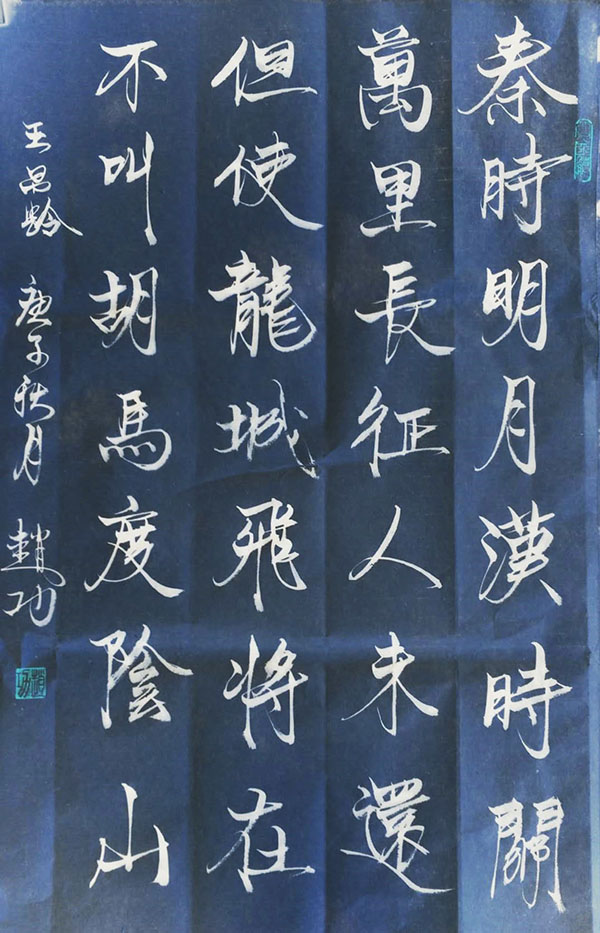 秦時明月漢時關
萬里長征人未還
但使龍城飛将在
不叫胡馬度陰山
王昌齡 庚子秋月 趙功